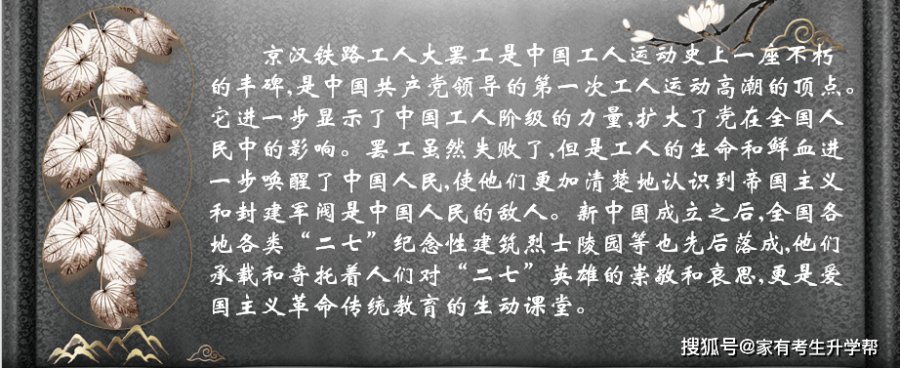 京汉铁路工人大罢工是中国工人运动史上一座不朽
的丰碑,是中国共产党领导的第一次工人运动高潮的顶点。
它进一步显示了中国工人阶级的力量,扩大了党在全国人
民中的影响。罢工虽然失败了,但是工人的生命和鲜血进
一步唤醒了中国人民,使他们更加清楚地认识到帝国主义
和封建军阀是中国人民的敌人。新中国成立之后,全国各
地各类“二七”纪念性建筑烈士陵园等也先后落成,他们
承载和寄托着人们对“二七”英雄的崇敬和哀思,更是爱
国主义革命传统教育的生动课堂。
搜狐号@家有考生升学帮